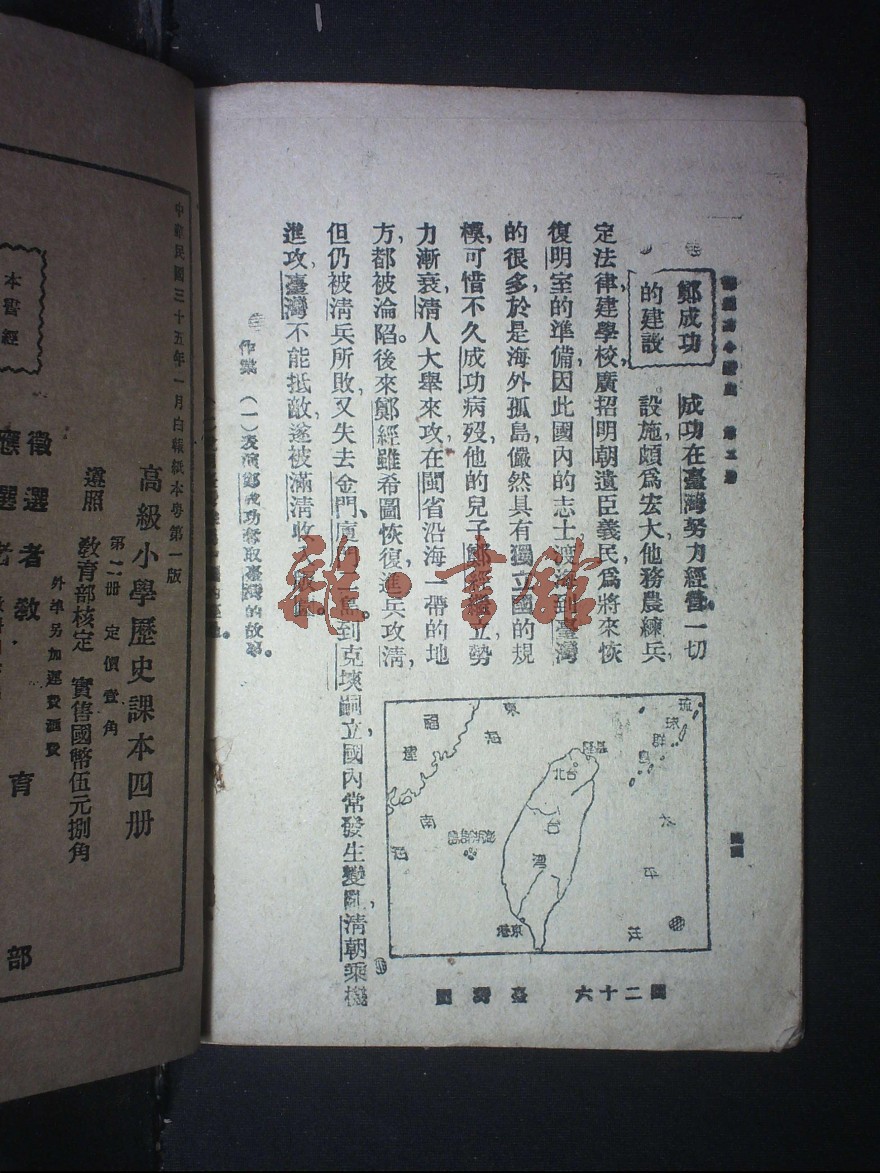 鄭成功
的建設
成功在臺灣努力經營一切
設施頗爲宏大，他務農練兵，
定法律，建學校，廣招明朝遺臣義民，爲將來恢
復明室的準備，因此國內的志士渡海到臺灣
的很多，於是海外孤島，儼然具有獨立國的規
模，可惜不久成功病歿，他的兒子鄭經繼立，勢
力漸衰，清人大舉來攻，在閩省沿海一帶的地
方，都被淪陷。後來鄭經雖希圖恢復，進兵攻清，
但仍被清兵所敗，又失去金門、廈門二島。到克塽嗣立，國內常發生變亂，清朝乘機
進攻，臺灣不能抵敵，遂被滿清收
作業 (一)表演鄭成功奪取臺灣的故事。
琉球群島
東海
福建
基隆
台北
太平
台灣
澎湖
南
圖二十六 臺灣圖
雜·書館
中華民國三十五年一月白報紙本粵第一版
高級小學歷史課本四册
第二册 定價壹角
遵照 教育部核定 實售國幣伍元捌角
外埠另加運費匯費
本書經
徵選者教育部
應選者